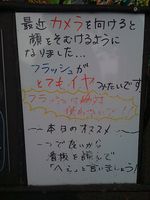 最近カメラを向けると
顔をそむけるように
なりました...
フラッシュが
とてもイヤみたいです
フラッシュは絶対
使わないで!
〜本日のオススメ〜
一つで良いから
看板を読んで
「へぇっ」と言いましょう!